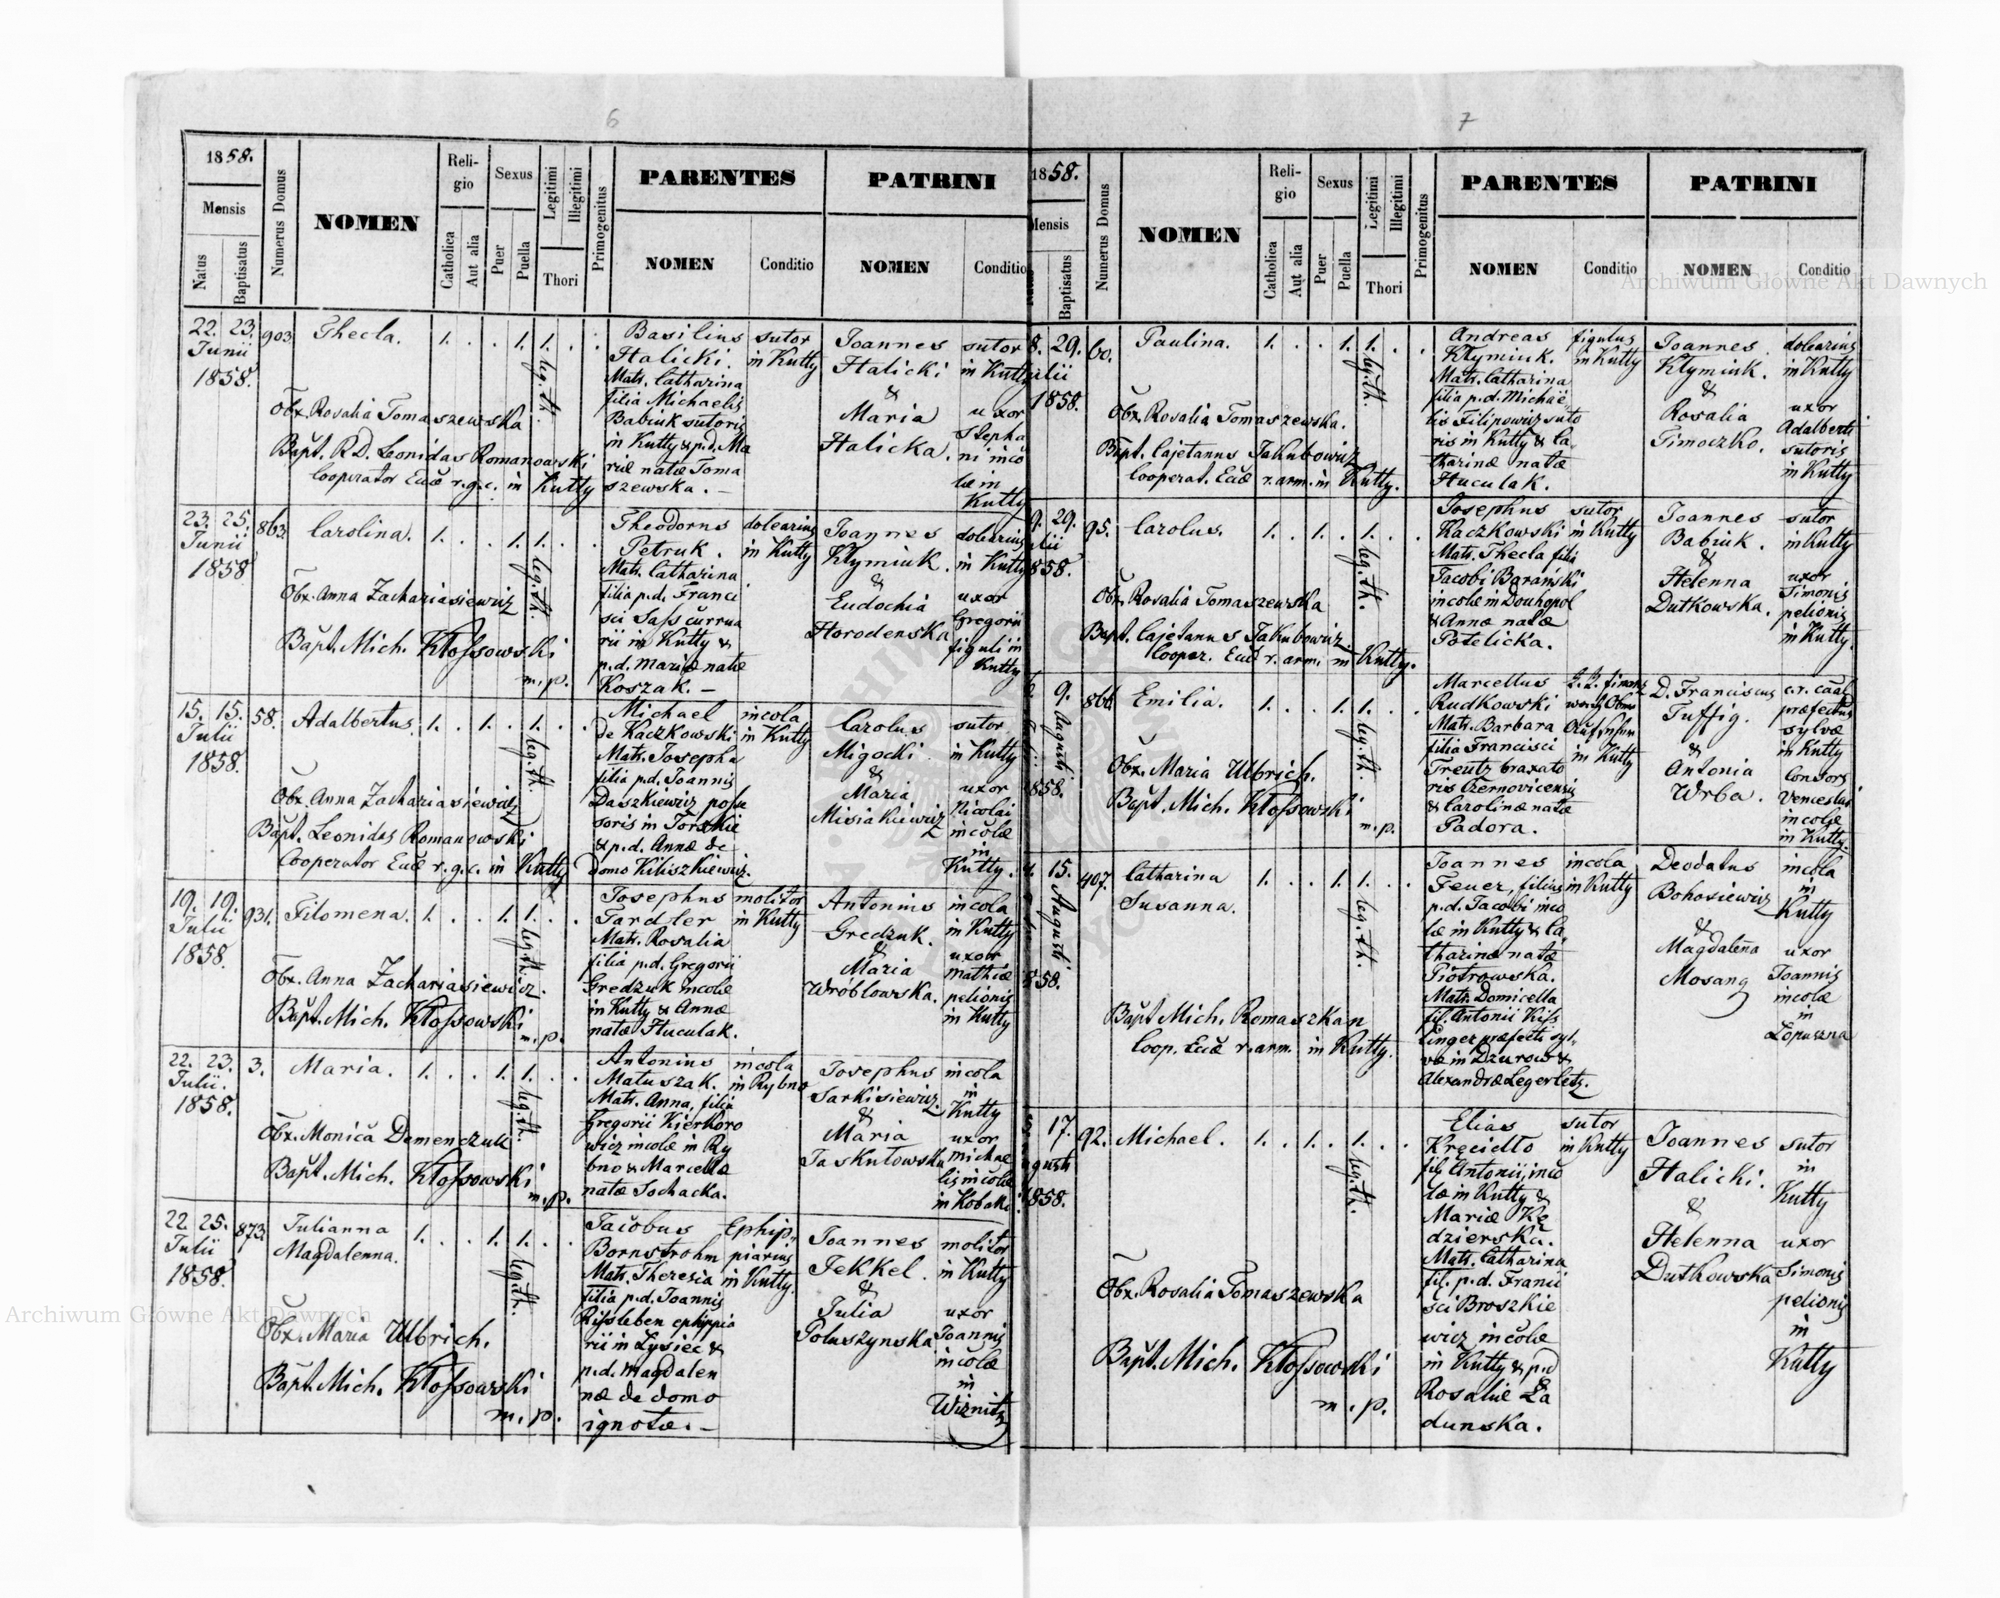 6
1858.
Mensis
Natus
Baptisatus
Numerus Domus
NOMEN
Religio
Catholica
Aut alia
Sexus
Puer
Puella
Legitimi
Illegitimi
Thori
Primogenitus
PARENTES
NOMEN
Conditio
PATRINI
NOMEN
Conditio
22. 23.
Junii
1858.
903
Thecla.
1. . . 1. 1. . .
leg. th.
Obx. Rosalia Tomaszewska
Bapt. R.D. Leonidas Romanowski
Cooperator Eccl̃ r.g.c. in Kutty
Basilius
Halicki.
Matr. Catharina
filia Michaelis
Babiuk sutoris
in Kutty & p.d. Ma
riæ natæ Toma
szewska. —
sutor
in Kutty
Joannes
Halicki
&
Maria
Halicka.
sutor
in Kutty
uxor
Stepha
ni inco
læ in
Kutty
23. 25.
Junii
1858
863
Carolina.
1. . . 1. 1. . .
leg. th.
Obx. Anna Zachariasiewicz
Bapt. Mich. Kłossowski
m. p.
Theodorus
Petruk.
Matr. Catharina
filia p.d. Franci
sci Sass currua
rii in Kutty &
p.d. Mariæ natæ
Koszak. —
dolearius
in Kutty
Joannes
Klymiuk.
&
Eudochia
Horodenska
dolearius
in Kutty
uxor
Gregorii
figuli in
Kutty
15. 15.
Julii
1858.
58.
Adalbertus.
1. . 1. . 1. . .
leg. th.
Obx. Anna Zachariasiewicz
Bapt. Leonidas Romanowski
Cooperator Eccl̃ r.g.c. in Kutty
Michael
de Kaczkowski
Matr. Josepha
filia p.d. Joannis
Daszkiewicz poss
soris in Torskie
& p.d. Annæ de
domo Kiliszkiewicz.
incola
in Kutty
Carolus
Migocki
&
Maria
Misiakiewicz
sutor
in Kutty
uxor
Nicolai
incolæ
in
Kutty.
19. 19.
Julii
1858.
931.
Filomena.
1. . . 1. 1. . .
leg. th.
Obx. Anna Zachariasiewicz.
Bapt. Mich. Kłossowski
m. p.
Josephus
Tardler
Matr. Rosalia
filia p.d. Gregorii
Gredzuk incolæ
in Kutty & Annæ
natæ Huculak.
molitor
in Kutty
Antonius
Gredzuk.
&
Maria
Wróblowska.
incola
in Kutty
uxor
Mathiæ
pelionis
in Kutty
22. 23.
Julii.
1858.
3.
Maria.
1. . . 1. 1. . .
leg. th.
Obx. Monica Demenczuk
Bapt. Mich. Kłossowski
m. p.
Antonius
Matuszak.
Matr. Anna, filia
Gregorii Kierkoro
wicz incolæ in Ry
bno & Marcellæ
natæ Sochacka.
incola
in Rybno
Josephus
Sarkisiewicz.
&
Maria
Jaskułowska
incola
in
Kutty
uxor
Michae
lis incolæ
in Kobaki.
22. 25.
Julii
1858.
873.
Julianna
Magdalenna.
1. . . 1. 1. . .
leg. th.
Obx. Maria Ulbrich.
Bapt. Mich. Kłossowski
m. p.
Jacobus
Bornstrohm
Matr. Theresia
filia p.d. Joannis
Rissleben ephippia
rii in Łysiec &
p.d. Magdalen
næ de domo
ignotæ. —
Ephip
piarius
in Kutty.
Joannes
Jekkel.
&
Julia
Poluszynska
molitor
in Kutty
uxor
Joannis
incolæ
in
Wiznitz
7
1858.
Mensis
Baptisatus
Numerus Domus
NOMEN
Religio
Catholica
Aut alia
Sexus
Puer
Puella
Legitimi
Illegitimi
Thori
Primogenitus
PARENTES
NOMEN
Conditio
PATRINI
NOMEN
Conditio
8. 29.
ulii
1858.
60.
Paulina.
1. . . 1. 1. . .
leg. th.
Obx. Rosalia Tomaszewska.
Bapt. Cajetanus Jakubowicz
Cooperat. Eccl̃ r. arm. in Kutty.
Andreas
Klymiuk.
Matr. Catharina
filia p.d. Michaë
lis Filipowicz suto
ris in Kutty & Ca
tharinæ natæ
Huculak.
figulus
in Kutty
Joannes
Klymiuk.
&
Rosalia
Timoczko.
dolearius
in Kutty
uxor
Adalberti
sutoris
in Kutty
9. 29.
ulii
858.
95.
Carolus.
1. . 1. . 1. . .
leg. th.
Obx. Rosalia Tomaszewska
Bapt. Cajetanus Jakubowicz
Cooper. Eccl̃ r. arm. in Kutty.
Josephus
Kaczkowski
Matr. Thecla filia
Jacobi Barański
incolæ in Douhopol
& Annæ natæ
Potelicka.
sutor
in Kutty
Joannes
Babiuk.
&
Helenna
Dutkowska.
sutor
in Kutty
uxor
Simonis
pelionis
in Kutty.
9.
Augusti
1858.
866.
Emilia.
1. . . 1. 1. . .
leg. th.
Obx. Maria Ulbrich.
Bapt. Mich. Kłossowski
m. p.
Marcellus
Rudkowski
Matr. Barbara
filia Francisci
Treutz braxato
ris Czernovicensis
& Carolinæ natæ
Padora.
in Kutty
D. Franciscus
Tuffig.
&
Antonia
Wrba.
c. r. caal
præfectus
sylvæ
in Kutty
Consors
Venceslai
incolæ
in Kutty.
15.
Augusti
858.
407.
Catharina
Susanna.
1. . . 1. 1. . .
leg. th.
Bapt. Mich. Romaszkan
Coop. Eccl̃ r. arm. in Kutty.
Joannes
Feuer, filius
p.d. Jacobi inco
læ in Kutty & Ca
tharinæ natæ
Piotrowska.
Matr. Domicella
fil. Antonii Kiss
linger præfecti syl
væ in Dzurow &
Alexandræ Legerletz.
incola
in Kutty
Deodatus
Bohosiewicz
&
Magdaleña
Mosang
incola
in
Kutty
uxor
Joannis
incolæ
in
Lopuszna
5. 17.
ugusti
1858.
92.
Michael.
1. . 1. . 1. . .
leg. th.
Obx. Rosalia Tomaszewska
Bapt. Mich. Kłossowski
m. p.
Elias
Kręcidło
fil. Antonii, inco
læ in Kutty &
Mariæ Kę
dzierska.
Matr. Catharina
fil. p.d. Franci
sci Broszkie
wicz incolæ
in Kutty & p.d
Rosaliæ Ła
dunska.
sutor
in Kutty
Joannes
Halicki.
&
Helenna
Dutkowska
sutor
in
Kutty
uxor
Simonis
pelionis
in
Kutty
Archiwum Główne Akt Dawnych
Archiwum Główne Akt Dawnych